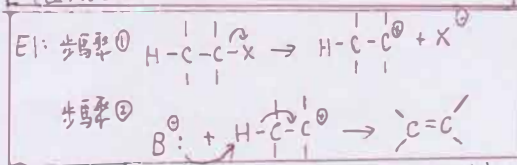 E1: 步驟① H-C-C-X → H-C-C⊕ + X⊖
步驟② B⊖: + H-C-C⊕ → C=C